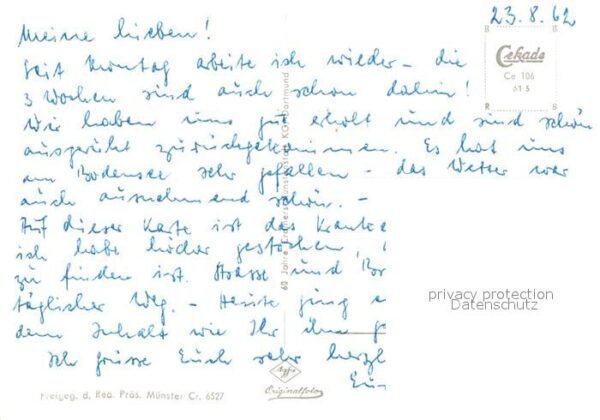 23.8.62
Meine Lieben!
Seit Montag arbeite ich wieder – die
3 Wochen sind auch schon dahin!
Wir haben uns gut erholt und sind schön
ausgeruht zurückgekommen. Es hat uns
am Bodensee sehr gefallen – das Wetter war
auch ausnehmend schön. –
Auf dieser Karte ist das Kranke
ich habe Löcher gestochen,
zu finden ist. Strasse und
täglicher Weg. – Heute ging
dem Inhalt wie Ihr ihn
Ich grüsse Euch sehr herzl
Eu
Cekade
Ce 106
61 S
60 Jahre Cramers Kunstanstalt KG. Dortmund
privacy protection
Datenschutz
Freigeg. d. Reg. Präs. Münster Cr. 6527
Agfa
Originalfoto